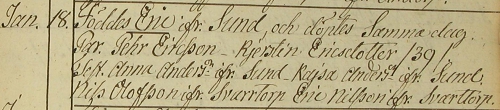 Jan. 18. Föddes Eric ifr. Sund och döptes Samma dag.
Par. Pehr Ericsson - Kjerstin Ericsdotter 39
Test. Anna Anders. ifr. Sund Kajsa Anders. ifr. Sund,
Nils Olofsson ifr. Svartorp Eric Nilsson ifr. Svartorp